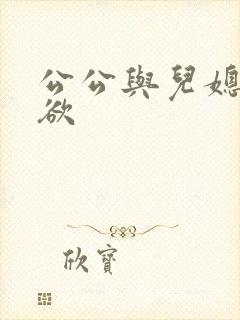 公公與兒媳
欲
欣寶